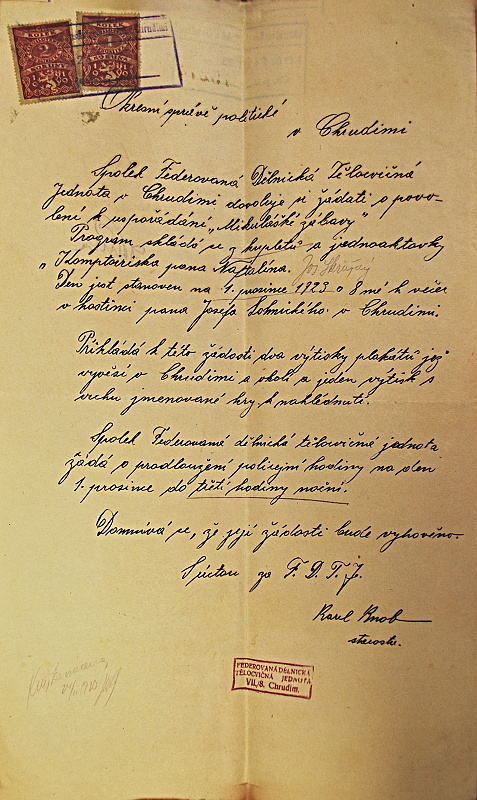 KOLEK
2
KORUNY
KOLEK
1
KORUNA
Chrudimi
Okresní správě politické
v Chrudimi
Spolek Federovaná Dělnická Tělocvičná
Jednota v Chrudimi dovoluje si žádati o povo-
lení k uspořádání „Mikulášské zábavy"
Program skládá se z kupletů a jednoaktovky
„Komptoiriska pana Nafalína.
Den jest stanoven na 1. prosince 1923 o 8 mé k večer
v hostinci pana Josefa v Chrudimi.
Přikládá k této žádosti dva výtisky plakátů jež
vyvěsí v Chrudimi a okolí a jeden výtisk s
vrchu jmenované hry k nahlédnutí.
Spolek Féderované dělnická tělocvičné jednota
žádá o prodloužení policejní hodiny na den
1. prosince do třetí hodiny noční.
Domnívá se, že její žádosti bude vyhověno.
S úctou za F. D. T. J.
Karel Knob
starosta.
FEDEROVANÁ DĚLNICKÁ
TĚLOCVIČNÁ JEDNOTA
VII./8. Chrudim.